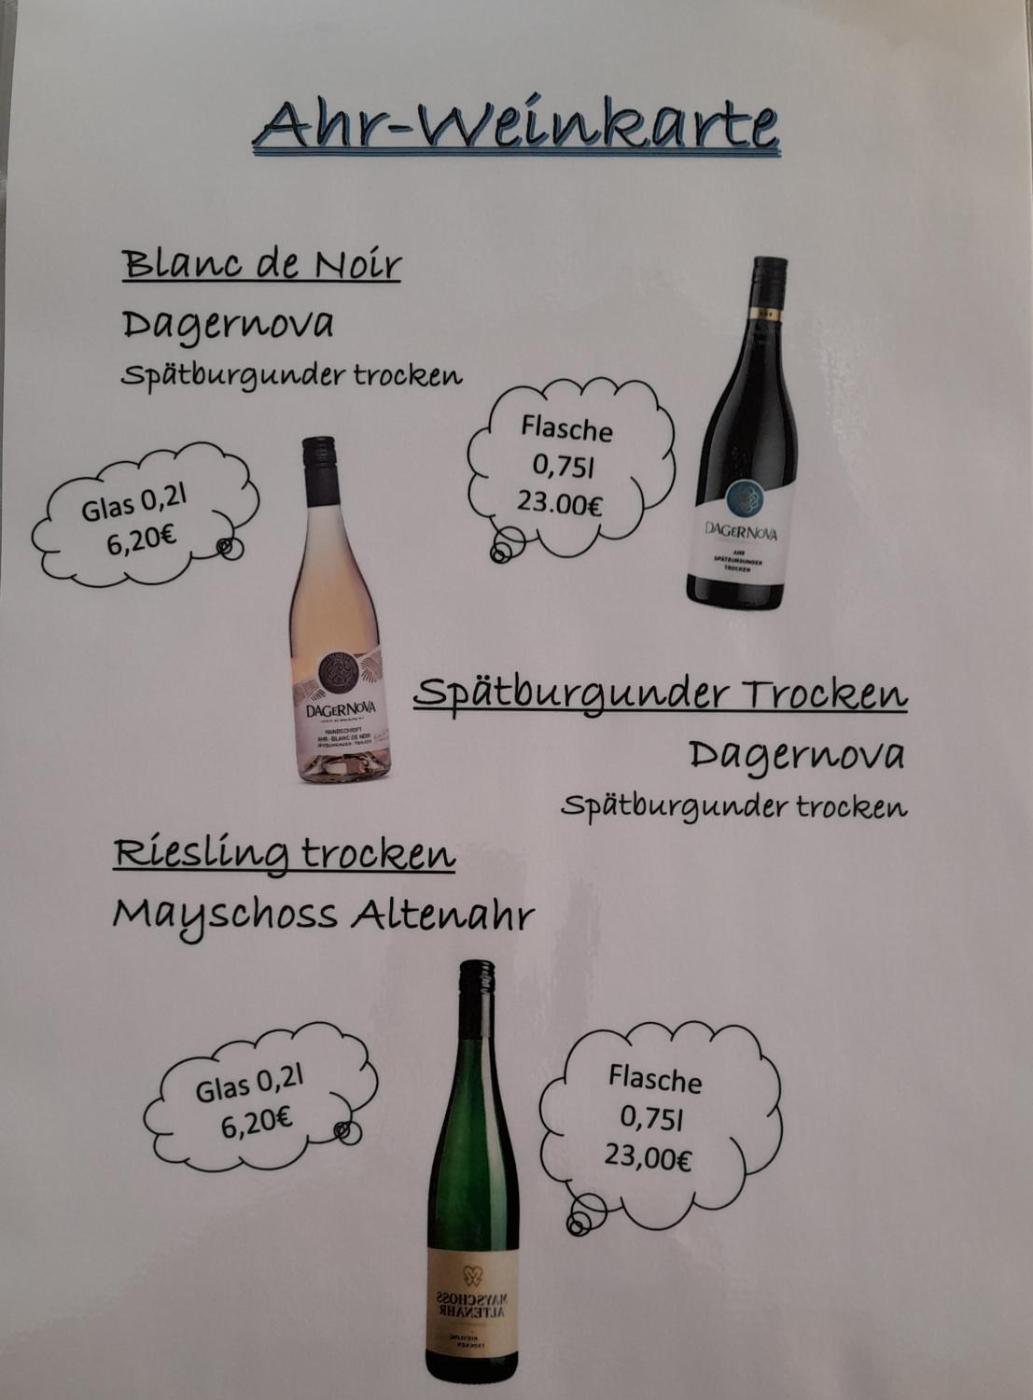 Ahr-Weinkarte
Blanc de Noir
Dagernova
Spätburgunder trocken
Glas 0,2l
6,20€
Flasche
0,75l
23.00€
DAGERNOVA
AHR
SPÄTBURGUNDER
TROCKEN
DAGERNOVA
HANDSCHRIFT
AHR-BLANC DE NOIR
SPÄTBURGUNDER TROCKEN
Spätburgunder Trocken
Dagernova
Spätburgunder trocken
Riesling trocken
Mayschoss Altenahr
Glas 0,2l
6,20€
Flasche
0,75l
23,00€
MAYSCHOSS
ALTENAHR
RIESLING
TROCKEN